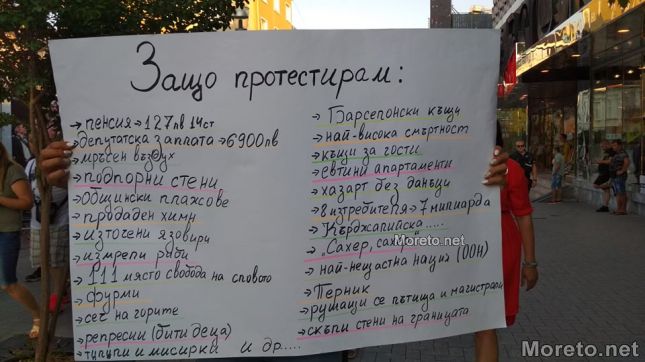 Защо протестирам:
→ пенсия → 127лв 14ст
→ депутатска заплата → 6900лв
→ мръсен въздух
→ подпорни стени
→ Общински плажове
→ продаден химн
→ източени язовири
→ измрели риби
→ 111 място свобода на словото
→ фурми
→ сеч на горите
→ репресии (бити деца)
→ тулупи и мисирки и др....
→ Барселонски къщи
→ най-висока смъртност
→ къщи за гости
→ евтини апартаменти
→ хазарт без данъци
→ 8 изтребителя → 7 милиарда
→ Кърджалийска.....
→ „Сахер, сахер"
→ най-нещастна нация (ООН)
→ Перник
→ рушащи се пътища и магистрали
→ скъпи стени на границата
Moreto.net
Moreto.net
Moreto.net